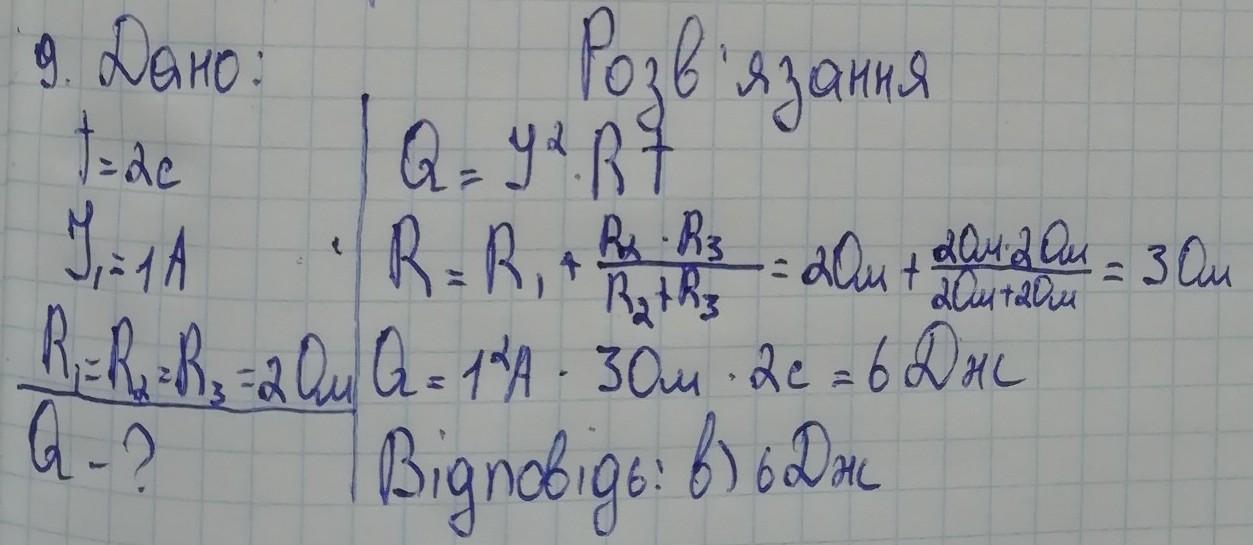 9. Дано:
t = 2с
I₁ = 1А
R₁ = R₂ = R₃ = 2Ом
Q - ?
Розв'язання
Q = I² · R t
R = R₁ + R₂ · R₃ / R₂ + R₃ = 2Ом + 2Ом · 2Ом / 2Ом + 2Ом = 3Ом
Q = 1²А · 3Ом · 2с = 6Дж
Відповідь: в) 6Дж